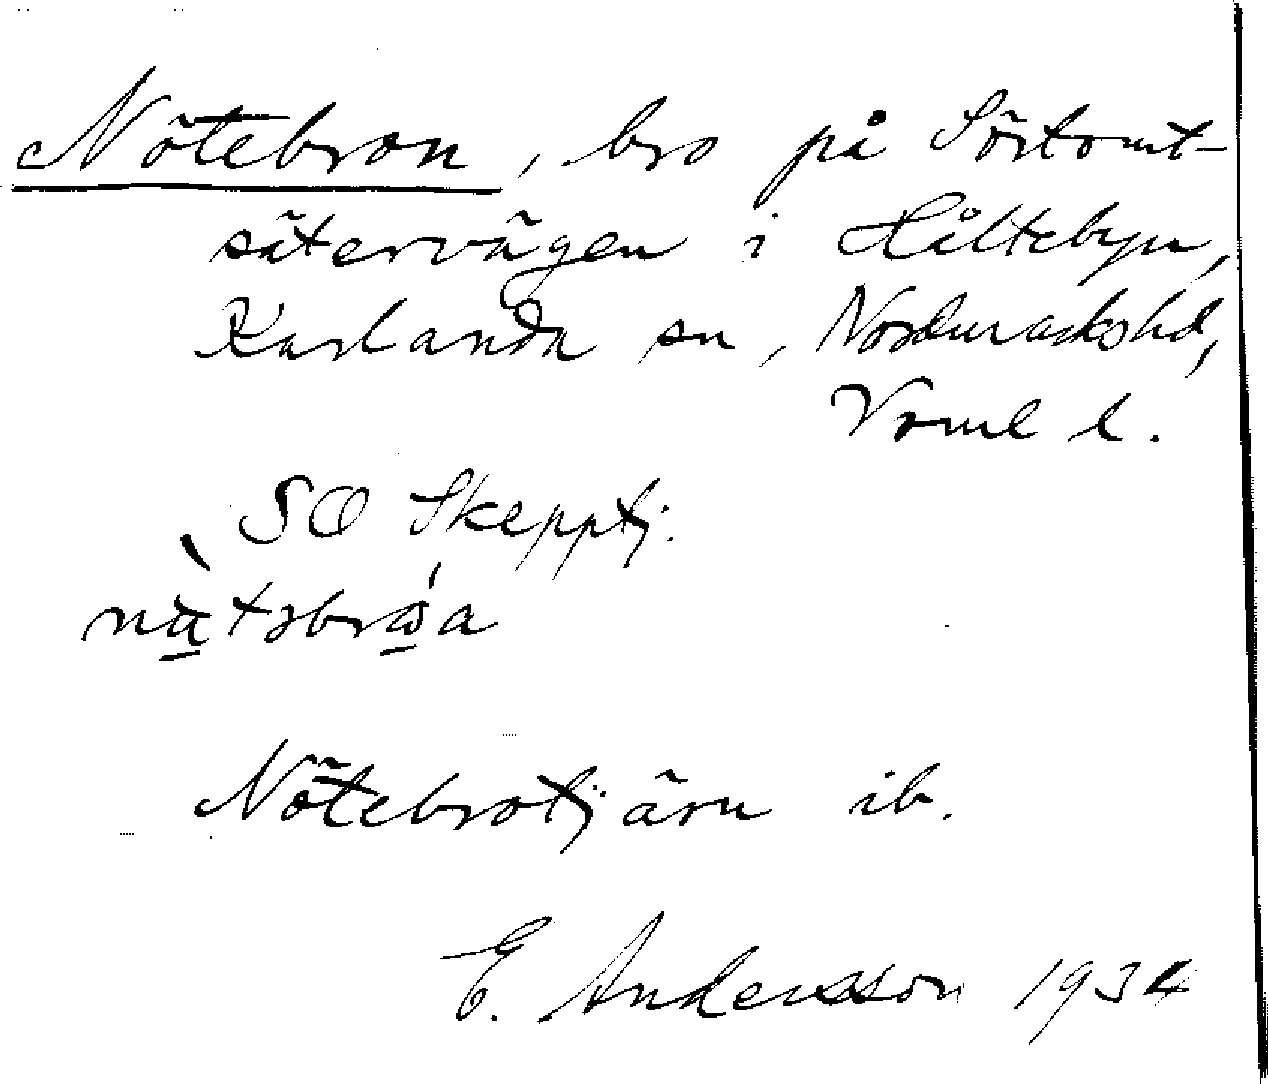 Nötebron, bro på Sörtomt-
sätervägen i Håltebyn,
Karlanda sn, Nordmarks hd,
Vrml l.
SO Skepptj.
Nötebrotjärn ib.
E. Andersson 1934